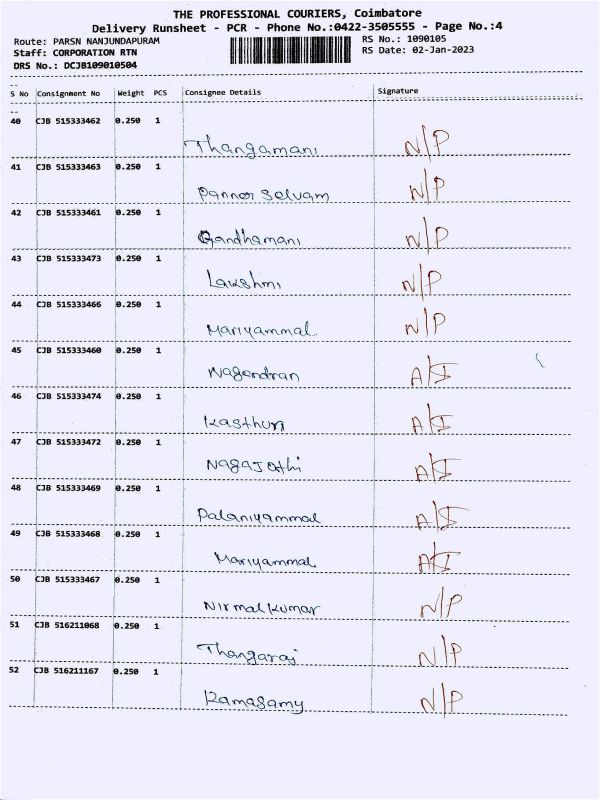 THE PROFESSIONAL COURIERS, Coimbatore
Delivery Runsheet - PCR - Phone No.:0422-3505555 - Page No.:4
Route: PARSN NANJUNDAPURAM RS No.: 1090105
Staff: CORPORATION RTN RS Date: 02-Jan-2023
DRS No.: DCJB109010504
S No Consignment No Weight PCS Consignee Details Signature
40 CJB 515333462 0.250 1
Thangamani N/P
41 CJB 515333463 0.250 1
Panner Selvam N/P
42 CJB 515333461 0.250 1
Gandhamani N/P
43 CJB 515333473 0.250 1
Lakshmi N/P
44 CJB 515333466 0.250 1
Mariyammal N/P
45 CJB 515333460 0.250 1
Nagendran A/I
46 CJB 515333474 0.250 1
Kasthuri A/I
47 CJB 515333472 0.250 1
Nagajothi A/I
48 CJB 515333469 0.250 1
Palaniyammal A/I
49 CJB 515333468 0.250 1
Mariyammal A/I
50 CJB 515333467 0.250 1
Nirmal Kumar N/P
51 CJB 516211068 0.250 1
Thangaraj N/P
52 CJB 516211167 0.250 1
Ramasamy N/P